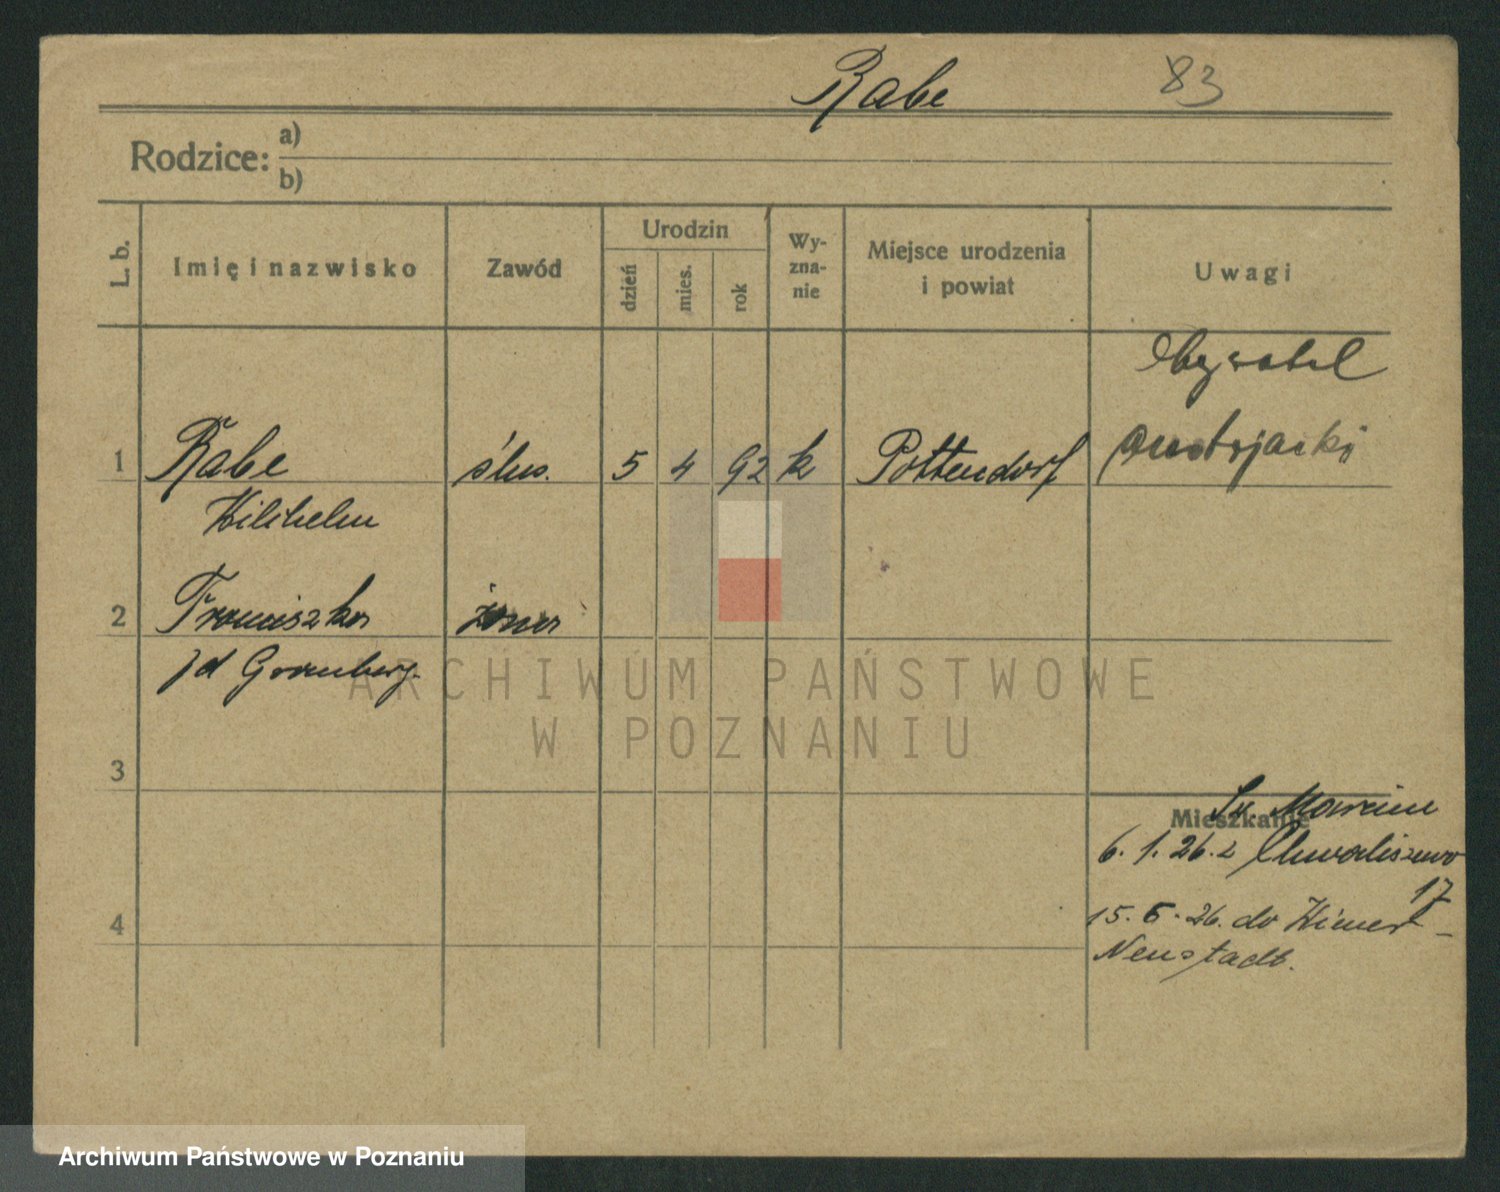 Rabe 83
Rodzice: a)
b)
L. b. Imię i nazwisko Zawód Urodzin dzień mies. rok Wy-zna-nie Miejsce urodzenia i powiat Uwagi
Obywatel
1 Rabe ślus. 5 4 92 k Pottendorf austrjacki
Wilhelm
2 Franciszka żona
zd
ARCHIWUM PAŃSTWOWE
W POZNANIU
3
Mieszkanie
Św. Marcin
6. 1. 26. z Chwaliszewo
17
4
15. 5. 26. do Wiener-
Neustadt.
Archiwum Państwowe w Poznaniu